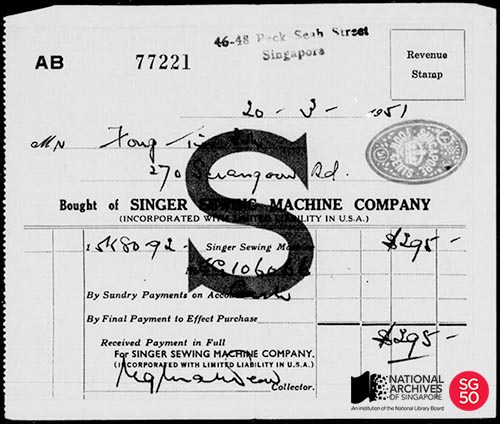 46-48 Peck Seah Street
Singapore
AB 77221
Revenue
Stamp
20 - 3 - 1951
Fong
270 Serangoon Rd.
Bought of SINGER SEWING MACHINE COMPANY
(INCORPORATED WITH LIMITED LIABILITY IN U.S.A.)
S
Singer Sewing $295 -
By Sundry Payments on
By Final Payment to Effect Purchase
$295 -
Received Payment in Full
For SINGER SEWING MACHINE COMPANY.
(INCORPORATED WITH LIMITED LIABILITY IN U.S.A.)
Collector.
NATIONAL
ARCHIVES
OF SINGAPORE
An institution of the National Library Board
SG
50